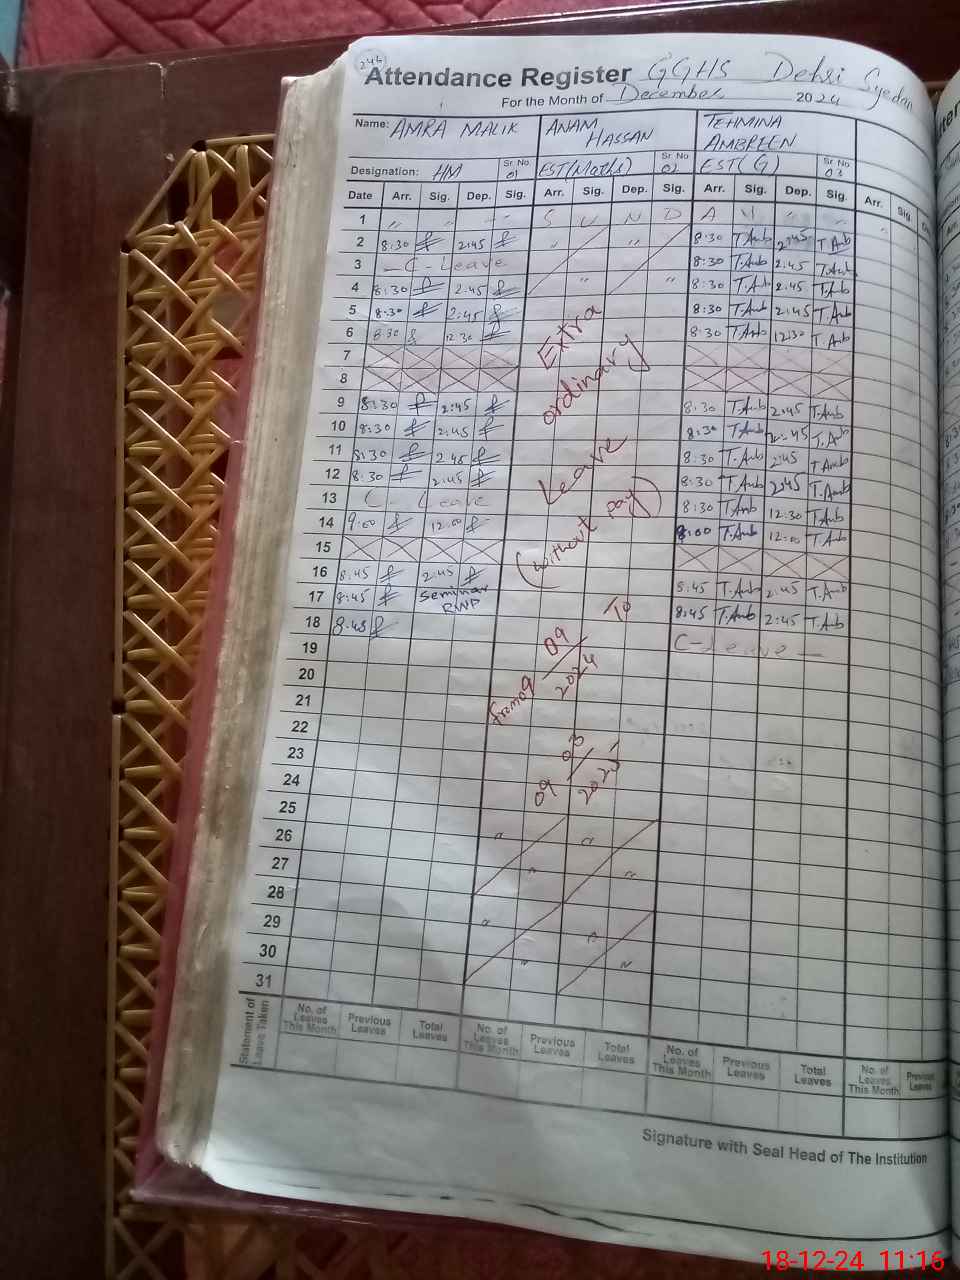 244
Attendance Register GGHS Dehri Syedan
For the Month of December 2024
Name: AMRA MALIK ANAM HASSAN TEHMINA AMBREEN
Designation: HM Sr. No 01 EST (Maths) Sr. No 02 EST (G) Sr. No 03
Date Arr. Sig. Dep. Sig. Arr. Sig. Dep. Sig. Arr. Sig. Dep. Sig. Arr. Sig.
1 " " " S U N D A Y " "
2 8:30 2:45 " " 8:30 T.Amb 2:45 T.Amb
3 - C - Leave 8:30 T.Amb 2:45 T.Amb
4 8:30 2:45 " " 8:30 T.Amb 2:45 T.Amb
5 8:30 2:45 8:30 T.Amb 2:45 T.Amb
6 8:30 12:30 8:30 T.Amb 12:30 T.Amb
7
8
9 8:30 2:45 8:30 T.Amb 2:45 T.Amb
10 8:30 2:45 8:30 T.Amb 2:45 T.Amb
11 8:30 2:45 8:30 T.Amb 2:45 T.Amb
12 8:30 2:45 8:30 T.Amb 2:45 T.Amb
13 C - Leave 8:30 T.Amb 12:30 T.Amb
14 9:00 12:00 9:00 T.Amb 12:00 T.Amb
15
16 8:45 2:45 8:45 T.Amb 2:45 T.Amb
17 8:45 Seminar RWP 8:45 T.Amb 2:45 T.Amb
18 8:45 C-Leave -
19
20
21
22
23
24
25
26 " "
27 " "
28
29 "
30 " "
31 "
Extra
ordinary
Leave
(without pay)
From 09 09/2024 To
09 03/2025
Statement of Leave Taken
No. of Leaves This Month Previous Leaves Total Leaves No. of Leaves This Month Previous Leaves Total Leaves No. of Leaves This Month Previous Leaves Total Leaves No. of Leaves This Month Previous Leaves
Signature with Seal Head of The Institution
18-12-24 11:16